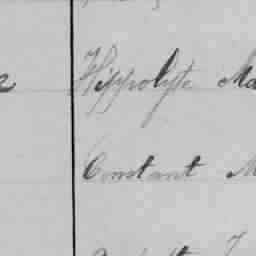 Hippolyte Ma
Constant M